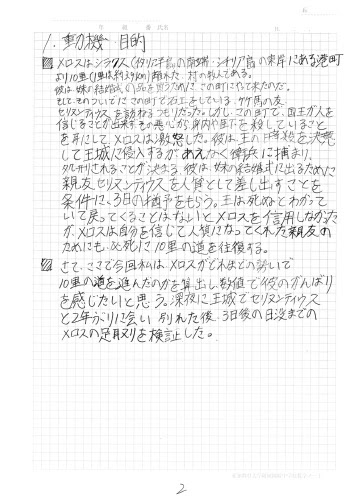 1. 動機・目的
メロスはシラクス(イタリア半島の南端・シチリア島の東岸)にある港町
より10里(1里は約3.9km)離れた、村の牧人である。
彼は、妹の結婚式の品を買うために、この町にやって来たのだ。
そして、そのついでにこの町で石工をしている、竹馬の友、
セリヌンティウスを訪ねるつもりだった。しかし、この町で、国王が人を
信じることが出来ず、その悪心から身内や臣下を殺していること
を耳にして、メロスは激怒した。彼は、王の暗殺を決意
して王城に侵入するが、あえなく衛兵に捕まり、
処刑されることが決まる。彼は、妹の結婚式に出るために
親友セリヌンティウスを人質として差し出すことを
条件に、3日の猶予をもらう。王は死ぬとわかって
いて戻ってくることはないとメロスを信用しなかった
が、メロスは自分を信じて人質になってくれた親友の
ためにも、必死に10里の道を往復する。
さて、ここで今回私は、メロスがどれほどの勢いで
10里の道を進んだのかを算出し、数値で彼のがんばり
を感じたいと思う。深夜に王城でセリヌンティウス
と2年ぶりに会い、別れた後、3日後の日没までの
メロスの足取りを検証した。
2